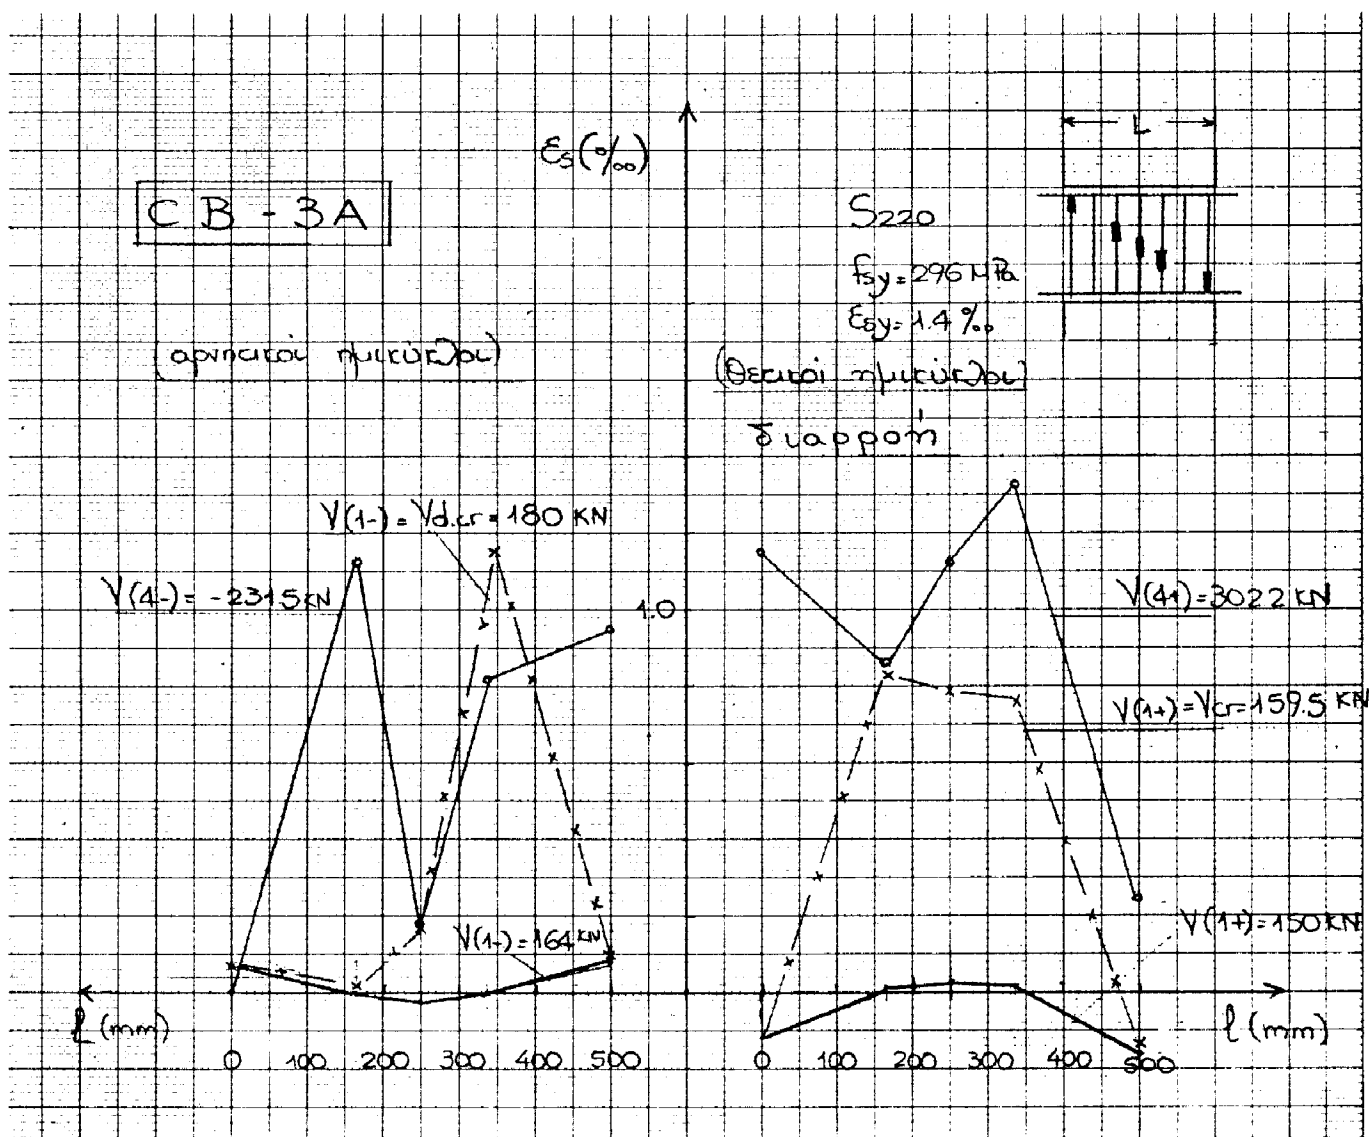 εs(‰)
L
CB-3A
S220
fsy=296 MPa
εsy=1.4‰
(αρνητικοί ημικύκλοι)
(Θετικοί ημικύκλοι)
διαρροή
V(1-)=Vd.cr=180 KN
V(4-)=-231.5 KN
1.0
V(4+)=302.2 KN
V(1+)=Vcr=159.5 KN
V(1-)=164 KN
V(1+)=150KN
l (mm)
l (mm)
0 100 200 300 400 500
0 100 200 300 400 500